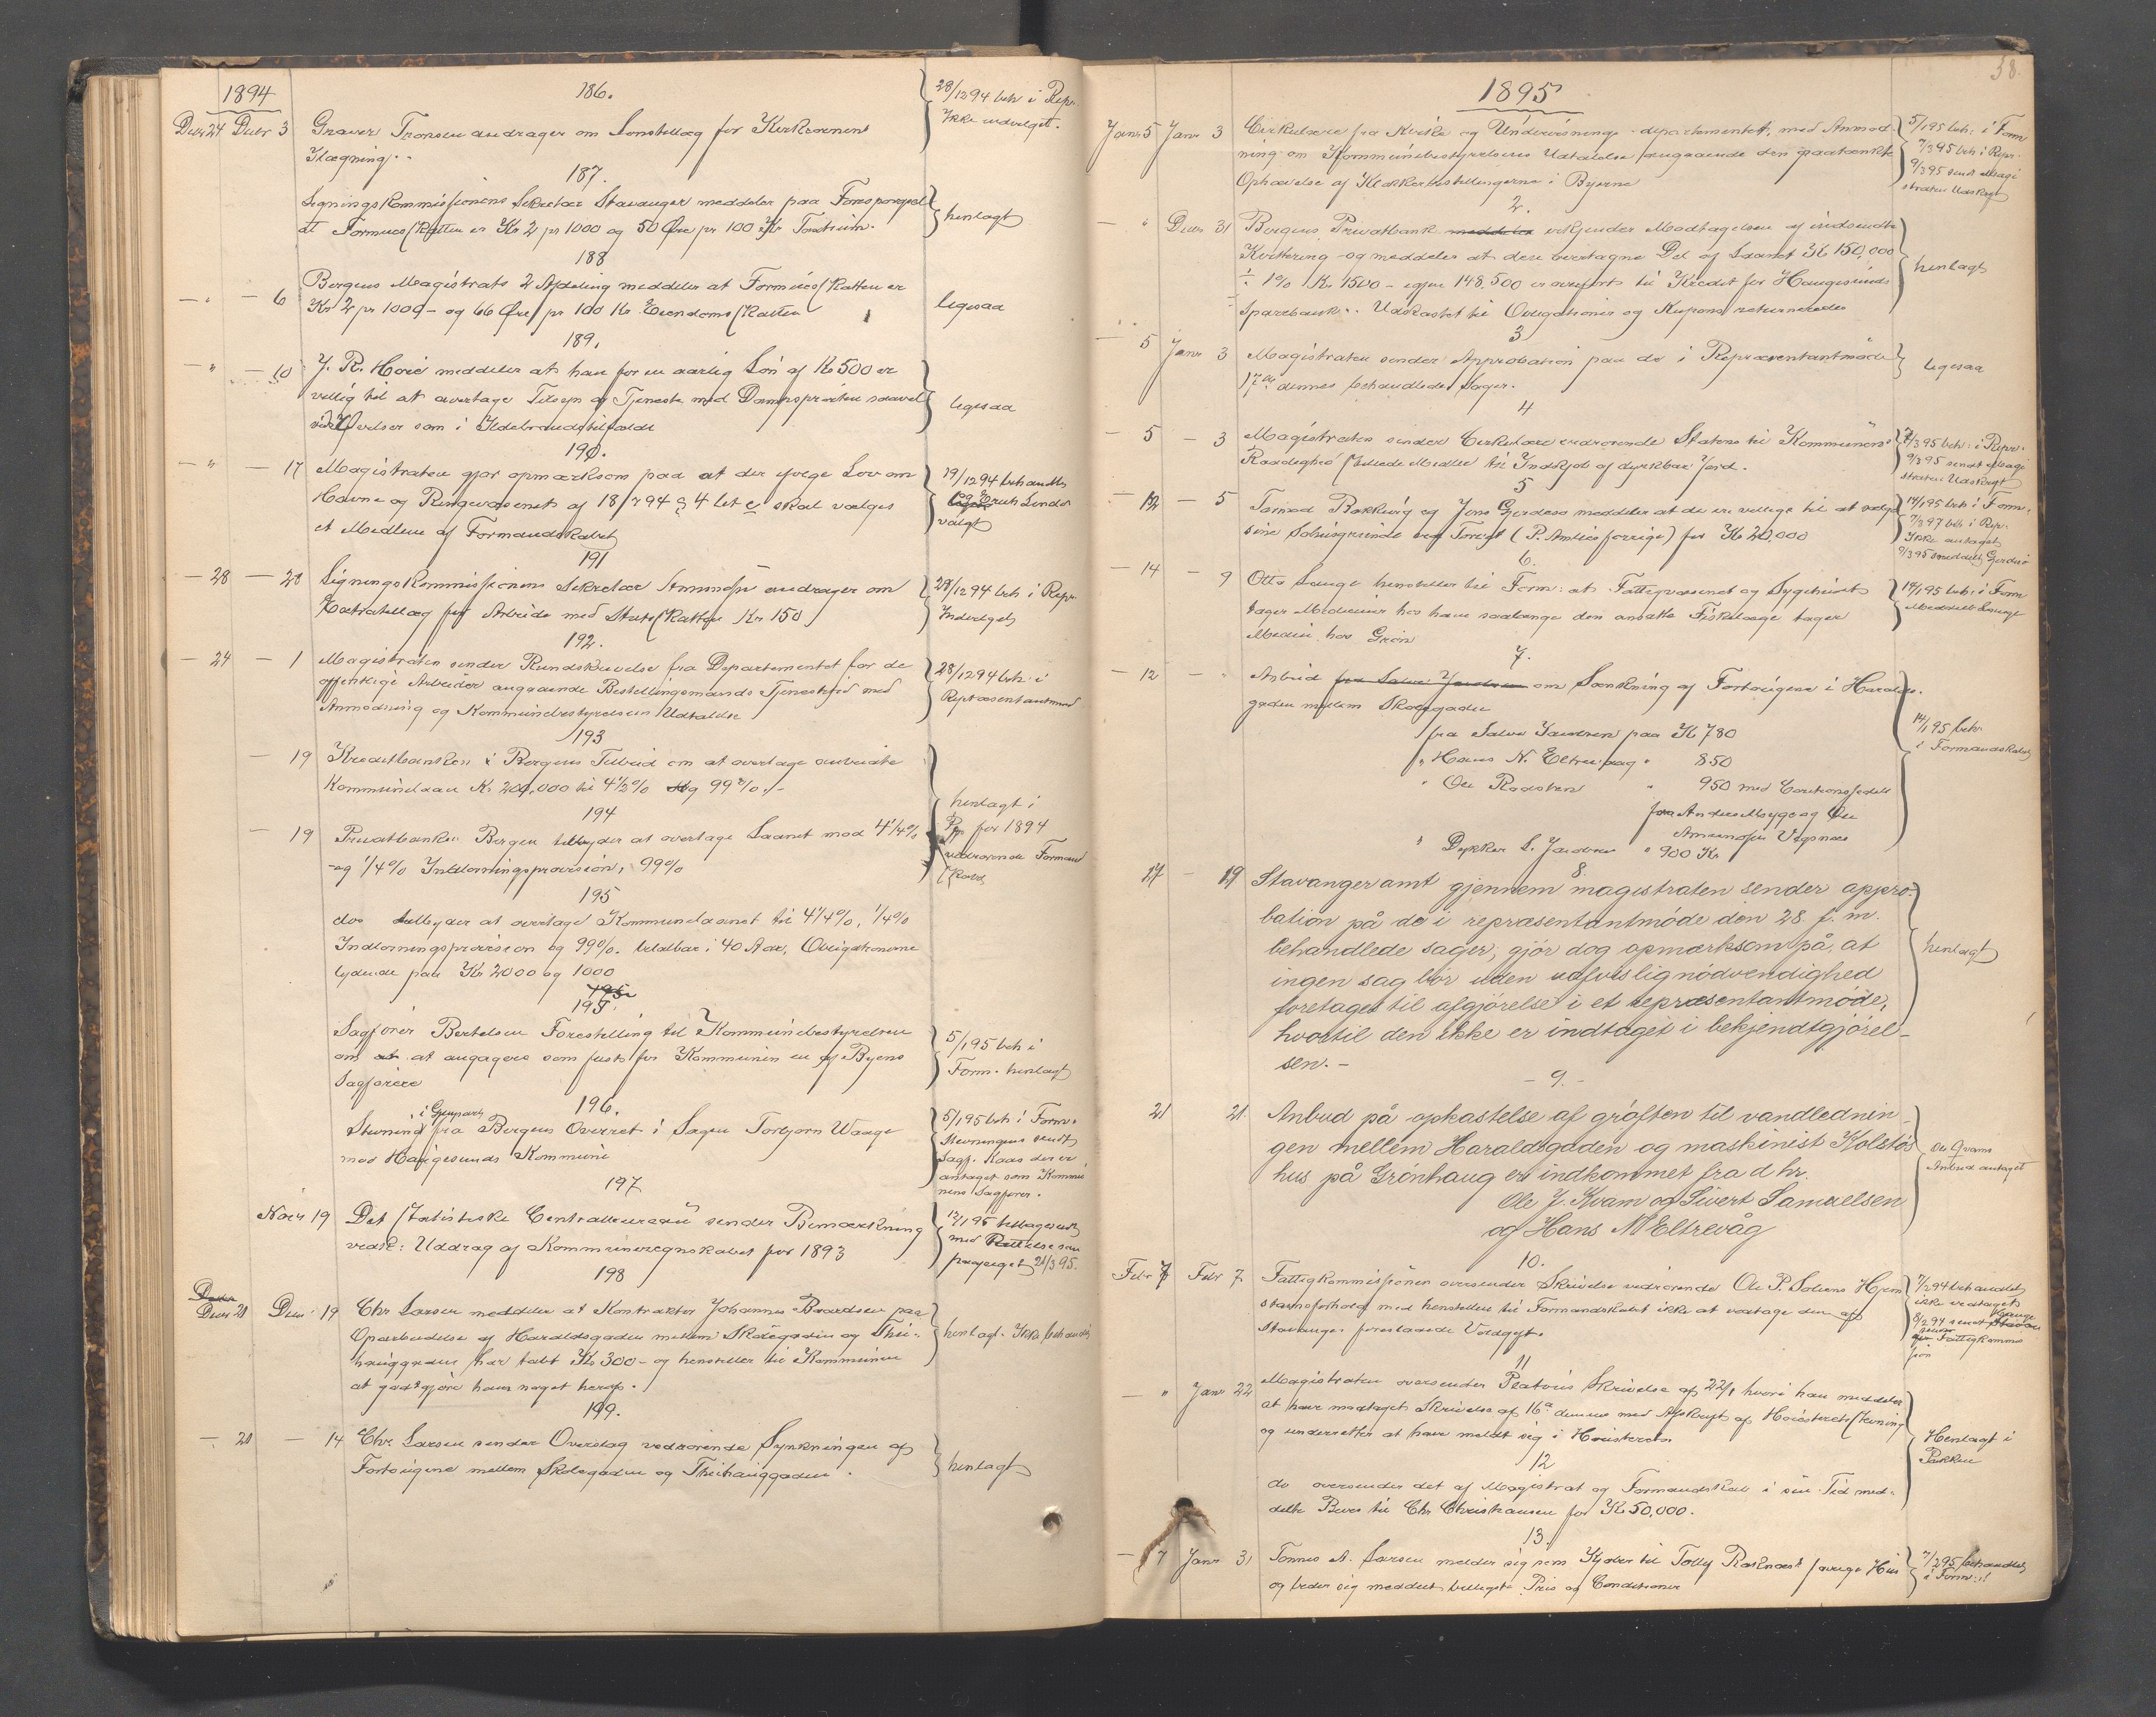 1894
186.
28/12 94 beh i Repr.
Ikke indvilget.
Decbr 24 Decbr 3 Graver Tronsen andrager om Lønstillæg for Kirkeovnens
Ilægning.
187.
Ligningskommissionens Sekretær Stavanger meddeler paa Forespørgsel
at Formuesskatten er Kr 2 pr 1000 og 50 Øre pr 100 Kr
henlagt
188
Bergens Magistrats 2 Afdeling meddeler at Formuesskatten er
— " — 6 Kr 2 pr 1000 - og 66 Øre pr 100 Kr. Eiendomsskatten
ligesaa
189.
— " — 10 J. R. Høie meddeler at han for en aarlig Løn af Kr 500 er
villig til at overtage Tilsyn og Tjeneste med Dampsprøiten saavel
ved Øvelser som i Ildebrandstilfælde
ligesaa
190.
— " — 17 Magistraten gjør opmærksom paa at der ifølge Lov om
Havne og Ringevæsenet af 18/7 94 § 4 let c skal vælges
et Medlem af Formandskabet
19/12 94 behandlet
valgt
191
— 28 — 28 Ligningskommissionens Sekretær andrager om
Extratillæg for Arbeide med Statsskatten Kr 150
28/12 94 beh i Repr.
Indvilget
192.
— 24 — 1 Magistraten sender Rundskrivelse fra Departementet for de
offentlige Arbeider angaaende Bestillingsmænds Tjenestetid med
Anmodning og Kommunebestyrelsens Udtalelse
28/12 94 beh. i
Repræsentantmød
193
— 19 Kreditbanken i Bergens Tilbud om at overtage
Kommunelaan Kr 200,000 til 4½% og 99%.-
194
— 19 Privatbanken Bergen tilbyder at overtage Laanet mod 4¼%
- og ¼% Indløsningsprovision, 99%
henlagt i
Pp for 1894
vedrørende Formand
skabet
195
do tilbyder at overtage Kommunelaanet til 4¼%, ¼%
Indløsningsprovision og 99%. betalbar i 40 Aar, Obligationerne
lydende paa Kr 2000 og 1000
195
195.
Sagfører Bertelsen Forestilling til Kommunebestyrelsen
om at at engagere som fast for Kommunen en af Byens
Sagførere
5/1 95 beh i
Form. henlagt
196.
i Gjenpart
Stevning fra Bergens Overret i Sagen Torbjørn Waage
mod Haugesunds Kommune
5/1 95 beh i Form.
Stevningen sendt
Sagf. Kaas der er
antaget som Kommu
nens Sagfører.
197
Novbr 19 Det statistiske Centralbureau sender Bemærkning
vedk: Uddrag af Kommuneregnskabet for 1893
12/1 95 tilbagesendt
med Rettelse som
21/3 95.
198
Decbr 28 Decbr 19 Chr Larsen meddeler at Kontraktør Johannes Baardsen paa
Oparbeidelse af Haraldsgaden mellem Skolegaden og Thu-
hauggaden har tabt Kr 300 - og henstiller til Kommunen
at godtgjøre ham noget heraf.
henlagt. Ikke behandlet
199.
— 28 — 14 Chr Larsen sender Overslag vedrørende Synkningen af
Fortougene mellem Skolegaden og Thuhauggaden.
henlagt
38.
1895
Janr 5 Janr 3 Cirkulære fra Kirke og Undervisnings-departementet, med Anmod
ning om Kommunebestyrelsens Udtalelse angaaende den paatænkte
Ophævelse af Klokkerbestillingerne i Byerne
5/1 95 beh. i Form
7/3 95 beh i Repr.
9/3 95 sendt Magi
straten Udskrift
2.
— " Decbr 31 Bergens Privatbank meddeler erkjender Modtagelsen af indsendte
Kvittering - og meddeler at den overtagne Del af Laanet Kr 150,000
÷ 1% Kr 1500 - igjen 148,500 er overført til Kredit for Haugesunds
Sparebank. Udkastet til Obligationer og Kupons returneredes
henlagt
3
— 5 Janr 3 Magistraten sender Approbation paa de i Repræsentantmøde
17de dennes behandlede Sager.
ligesaa
4
— 5 — 3 Magistraten sender Cirkulære vedrørende Statens til Kommunens
Raadighed stillede Midler til Indkjøb af dyrkbar Jord.
7/3 95 beh. i Repr.
9/3 95 sendt Magi
straten Udskrift
5
— 12 — 5 Tormod Bakkevig og Jens Gjerdesø meddeler at de er villige til at sælge
sine Søhusgrunde ved Torvet (P. Amlies forrige) for Kr 20,000
14/1 95 beh i Form.
7/3 97 beh i Repr.
Ikke antaget
9/3 95 meddelt Gjerdesø
6.
— 14 — 9 Otto Lauge henstiller til Form: at Fattigvæsenet og Sygehuset
tager Mediciner hos ham saalænge den ansatte Fiskelæge tager
Medicin hos Grøn
14/1 95 beh. i Form
Meddelt Lauge
7.
— 12 — " Anbud fra Salve Jacobsen om Sænkning af Fortougene i Haralds-
gaden mellem Skolegaden
fra Salve Jacobsen paa Kr 780
" Hans N. Eltrevaag " 850
" Ole Rødsten " 950 med Cautionsseddel
fra Anders Myge og Ole
Amundsen Vespnes
" Dykker L. Jacobsen " 900 Kr
14/1 95 beh.
i Formandskabet
8.
17 — 19 Stavanger amt gjennem magistraten sender appro-
bation på de i repræsentantmøde den 28. f. m.
behandlede sager; gjør dog opmærksom på, at
ingen sag bør uden uafvislig nødvendighed
foretages til afgjørelse i et repræsentantmøde,
hvortil den ikke er indtaget i bekjendtgjørel-
sen. -
henlagt
- 9. -
21 21. Anbud på opkastelse af grøften til vandlednin-
gen mellem Haraldsgaden og maskinist Kolstøs
hus på Grønhaug er indkommet fra d hr.
Ole J. Kvam og Sivert Samuelsen
og Hans N Eltrevåg
Ole Qvams
Anbud antaget
10.
Febr 7 Febr 7 Fattigkommissionen oversender Skrivelse vedrørende Ole P. Solums Hjem
stavnsforhold med henstillen til Formandskabet ikke at vedtage den af
Stavanger foreslaaede Voldgift.
7/2 94 behandlet
ikke vedtaget
8/2 94 sendt Hauge
sunds Fattigkommis
sion
11
— " Janr 22 Magistraten oversender Platous Skrivelse af 22/1 hvori han meddeler
at have modtaget Skrivelse af 16de dennes med Afskrift af Høiesteretsstevning
og underretter at have meldt sig i Høiesteret.
12
do oversender det af Magistrat og Formandskab i sin Tid med-
delte Bevis til Chr Christiansen for Kr 50,000.
Henlagt i
Pakken
13.
— 7 Janr 31 Tønnes A. Larsen melder sig som Kjøber til Tolly Rasknæs' forrige Hus
og beder sig meddelt billigste Pris og Conditioner
7/2 95 behandlet
i Form: